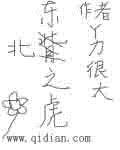 作者
丫力很大
东之虎
北
www.qidian.com